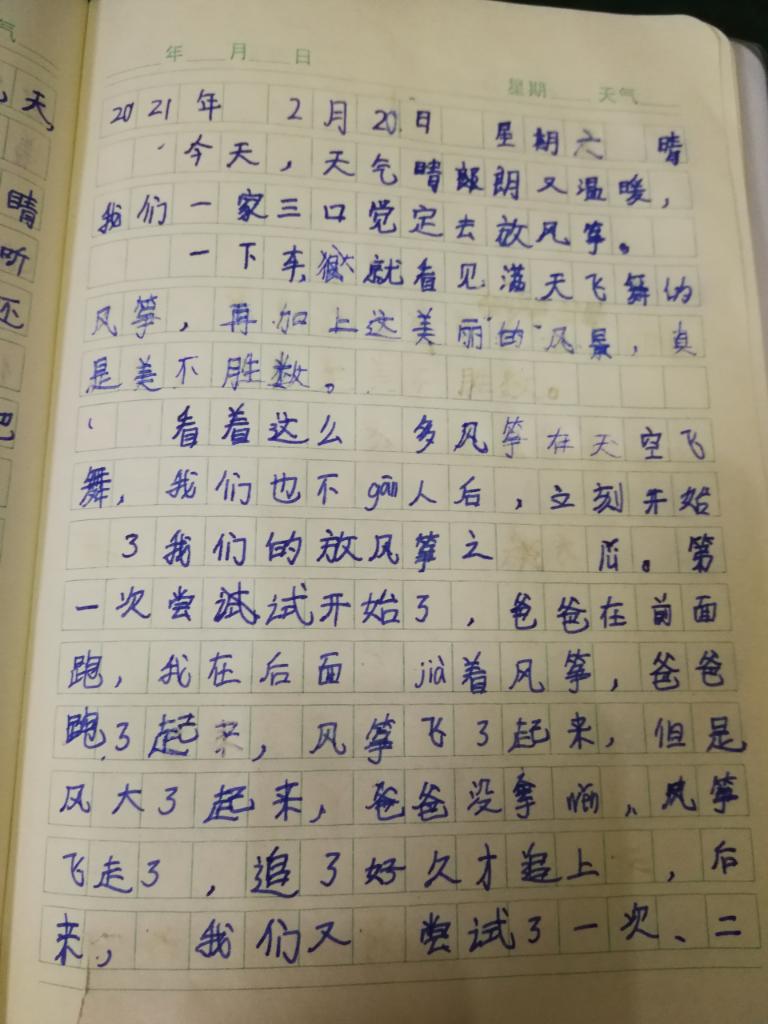 年 月 日
星期 天气
2021年 2月20日 星期六 晴
今天，天气晴朗又温暖，
我们一家三口觉定去放风筝。
一下车，就看见满天飞舞的
风筝，再加上这美丽的风景，真
是美不胜数。
看着这么多风筝在天空飞
舞，我们也不gān人后，立刻开始
了我们的放风筝之 。第
一次尝试试开始了，爸爸在前面
跑，我在后面 jià着风筝，爸爸
跑了起来，风筝飞了起来，但是
风大了起来，爸爸没拿 ，风筝
飞走了，追了好久才追上，后
来，我们又尝试了一次、二
气
天，
晴
听
还
吧